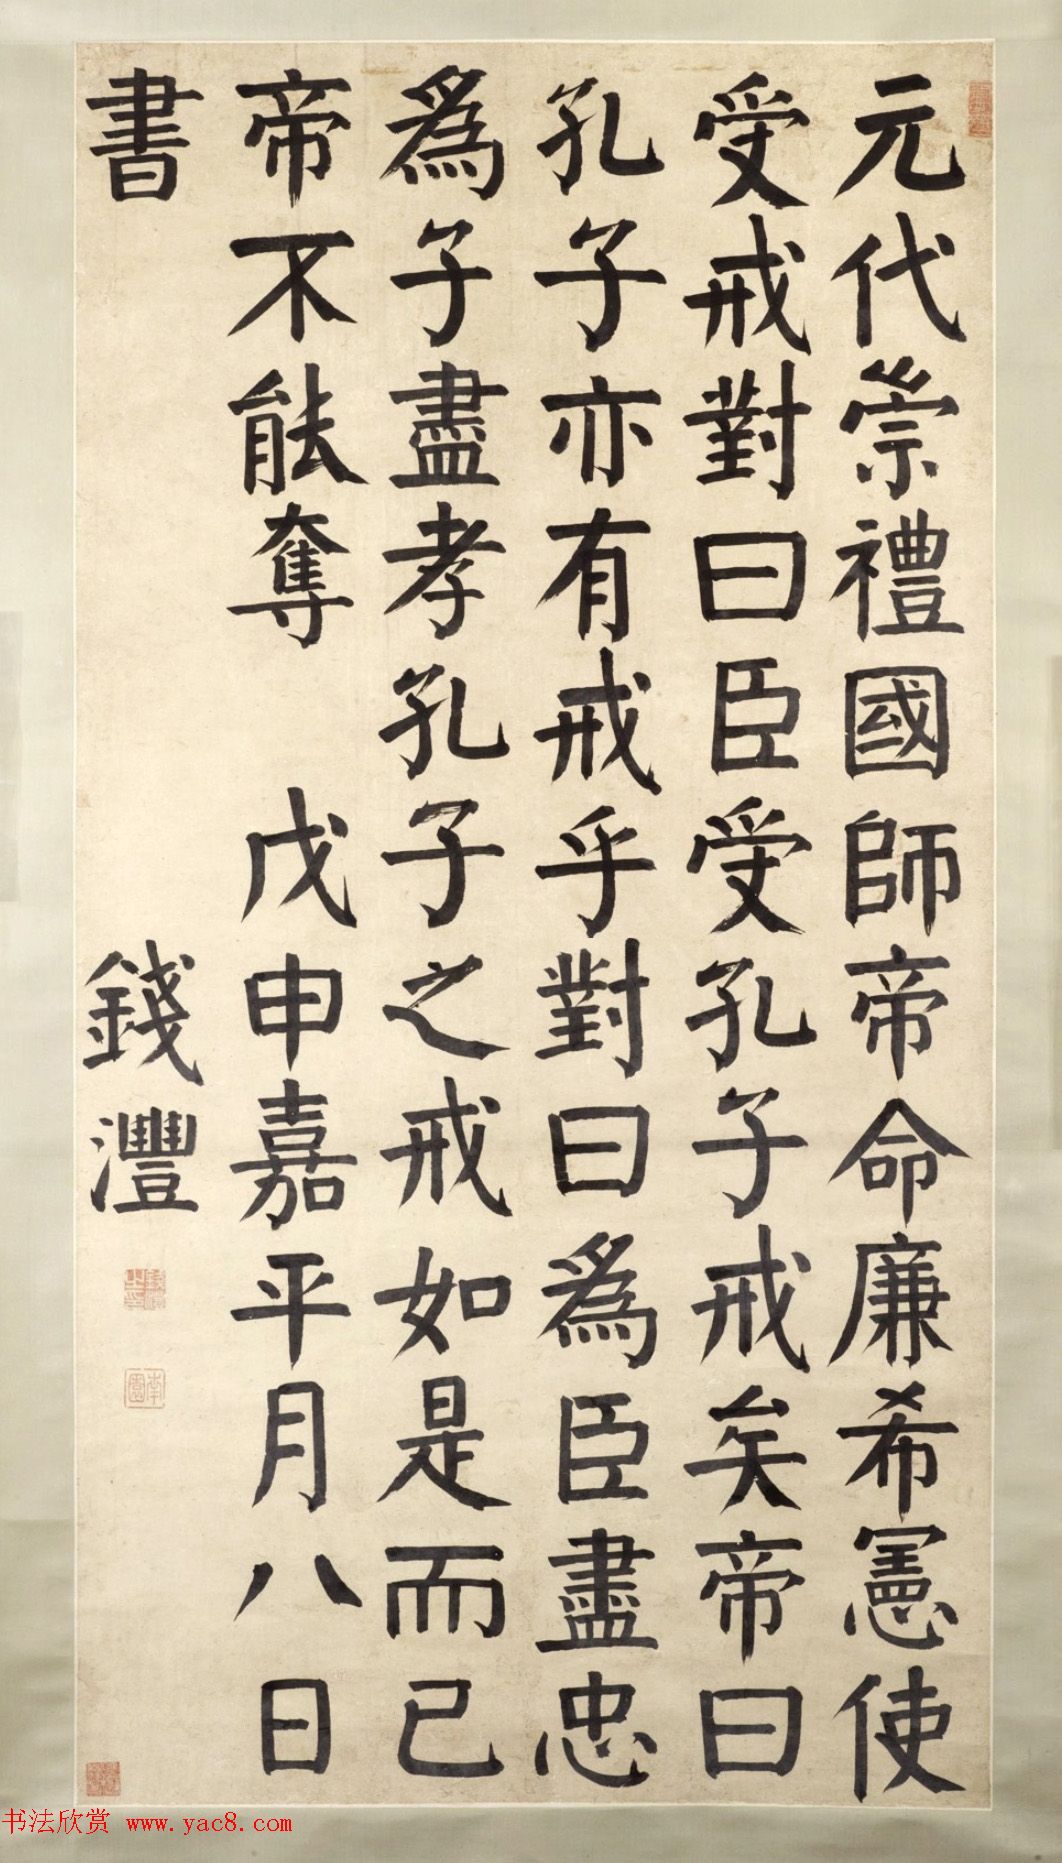 元代崇禮國師帝命廉希憲使
受戒對曰臣受孔子戒矣帝曰
孔子亦有戒乎對曰為臣盡忠
為子盡孝孔子之戒如是而已
帝不能奪 戊申嘉平月八日
書 錢灃
书法欣赏 www.yac8.com